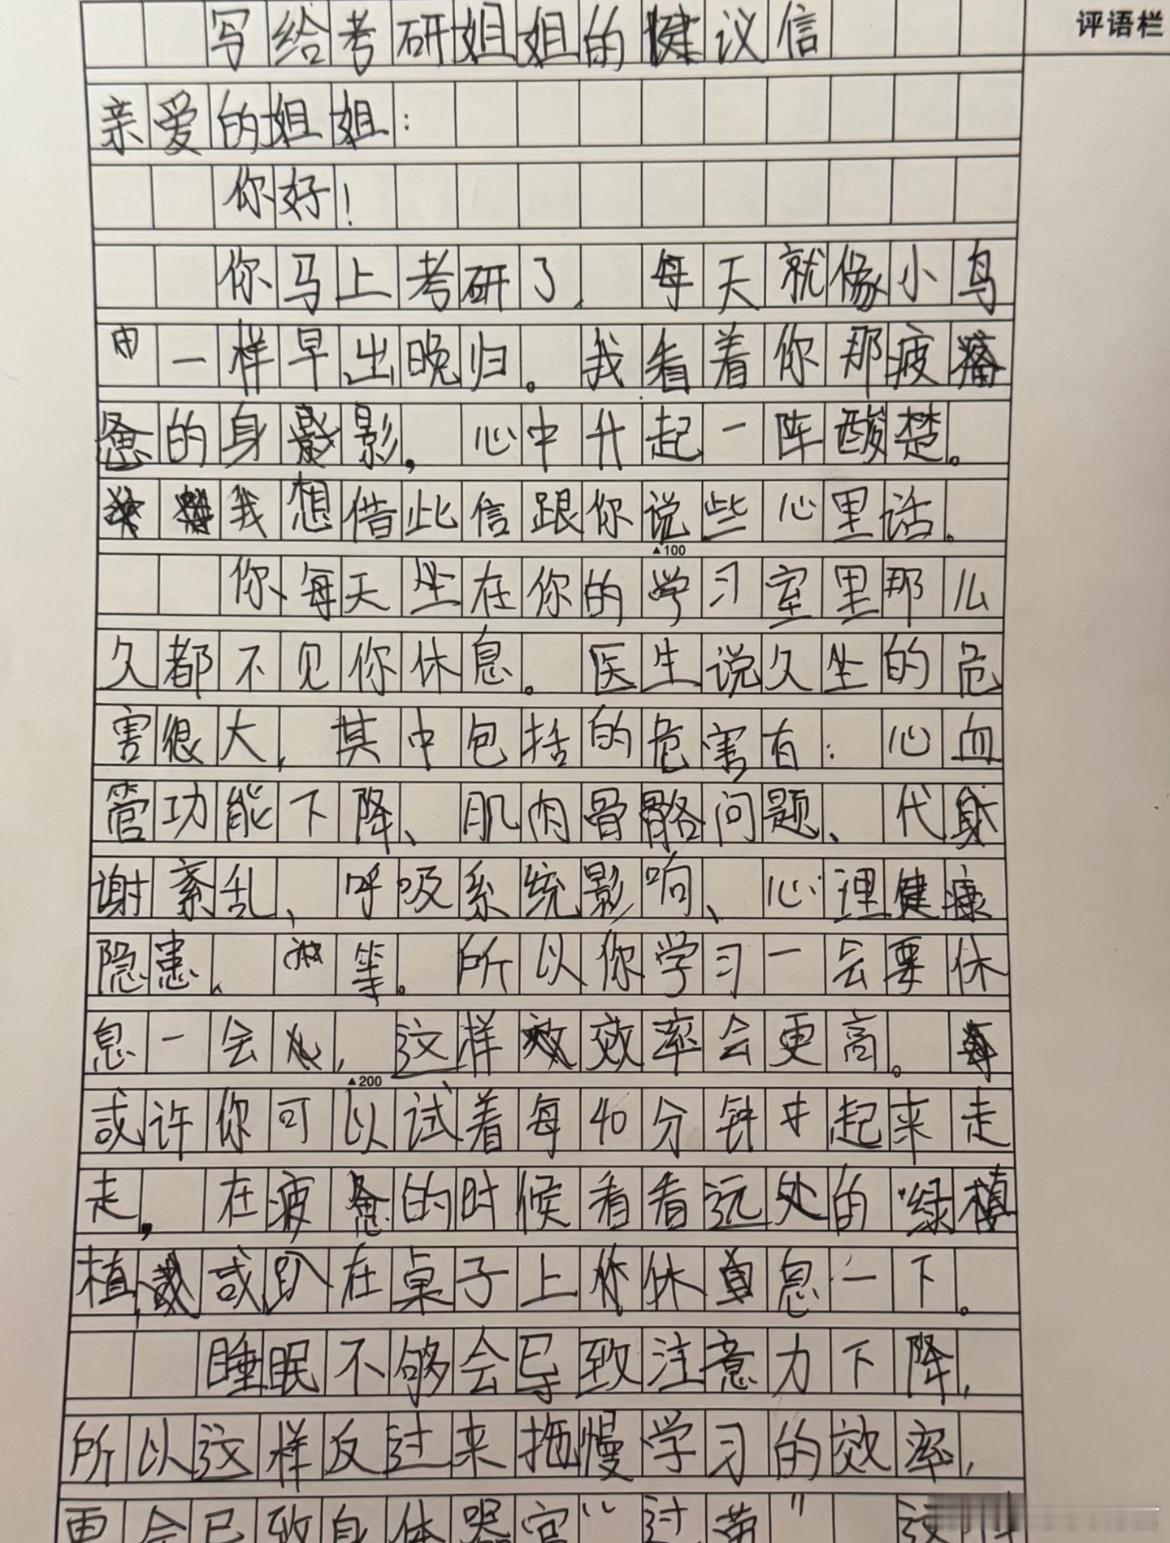 写给考研姐姐的健议信
评语栏
亲爱的姐姐：
你好！
你马上考研了，每天就像小鸟
一样早出晚归。我看着你那疲
惫的身影，心中升起一阵酸楚。
我想借此信跟你说些心里话。
▲100
你每天坐在你的学习室里那么
久都不见你休息。医生说久坐的危
害很大，其中包括的危害有：心血
管功能下降、肌肉骨骼问题、代
谢紊乱、呼吸系统影响、心理健康
隐患、等。所以你学习一会要休
息一会，这样效率会更高。
▲200
或许你可以试着每40分钟中起来走
走，在疲惫的时候看看远处的绿
植，或趴在桌子上休息一下。
睡眠不够会导致注意力下降，
所以这样反过来拖慢学习的效率，
更会导致身体器官“过劳”